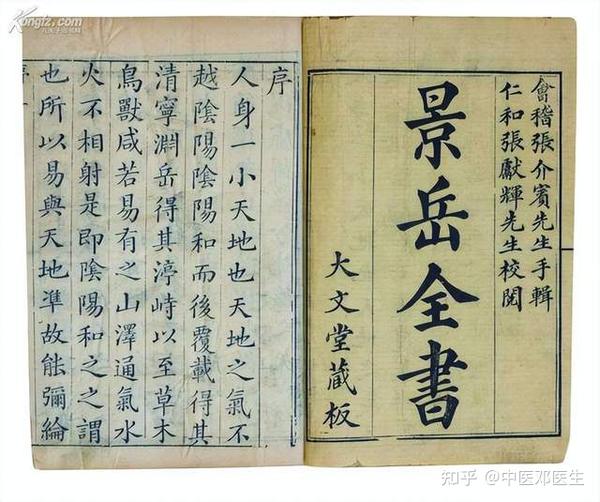 會稽張介賓先生手輯
仁和張獻輝先生校閱
景岳全書
大文堂藏板
序
人身一小天地也天地之氣不
越陰陽陰陽和而後覆載得其
清寧淵岳得其渟峙以至草木
鳥獸咸若易有之山澤通氣水
火不相射是即陰陽和之之謂
也所以易與天地準故能彌綸
Kongfz.com
知乎 @中医邓医生